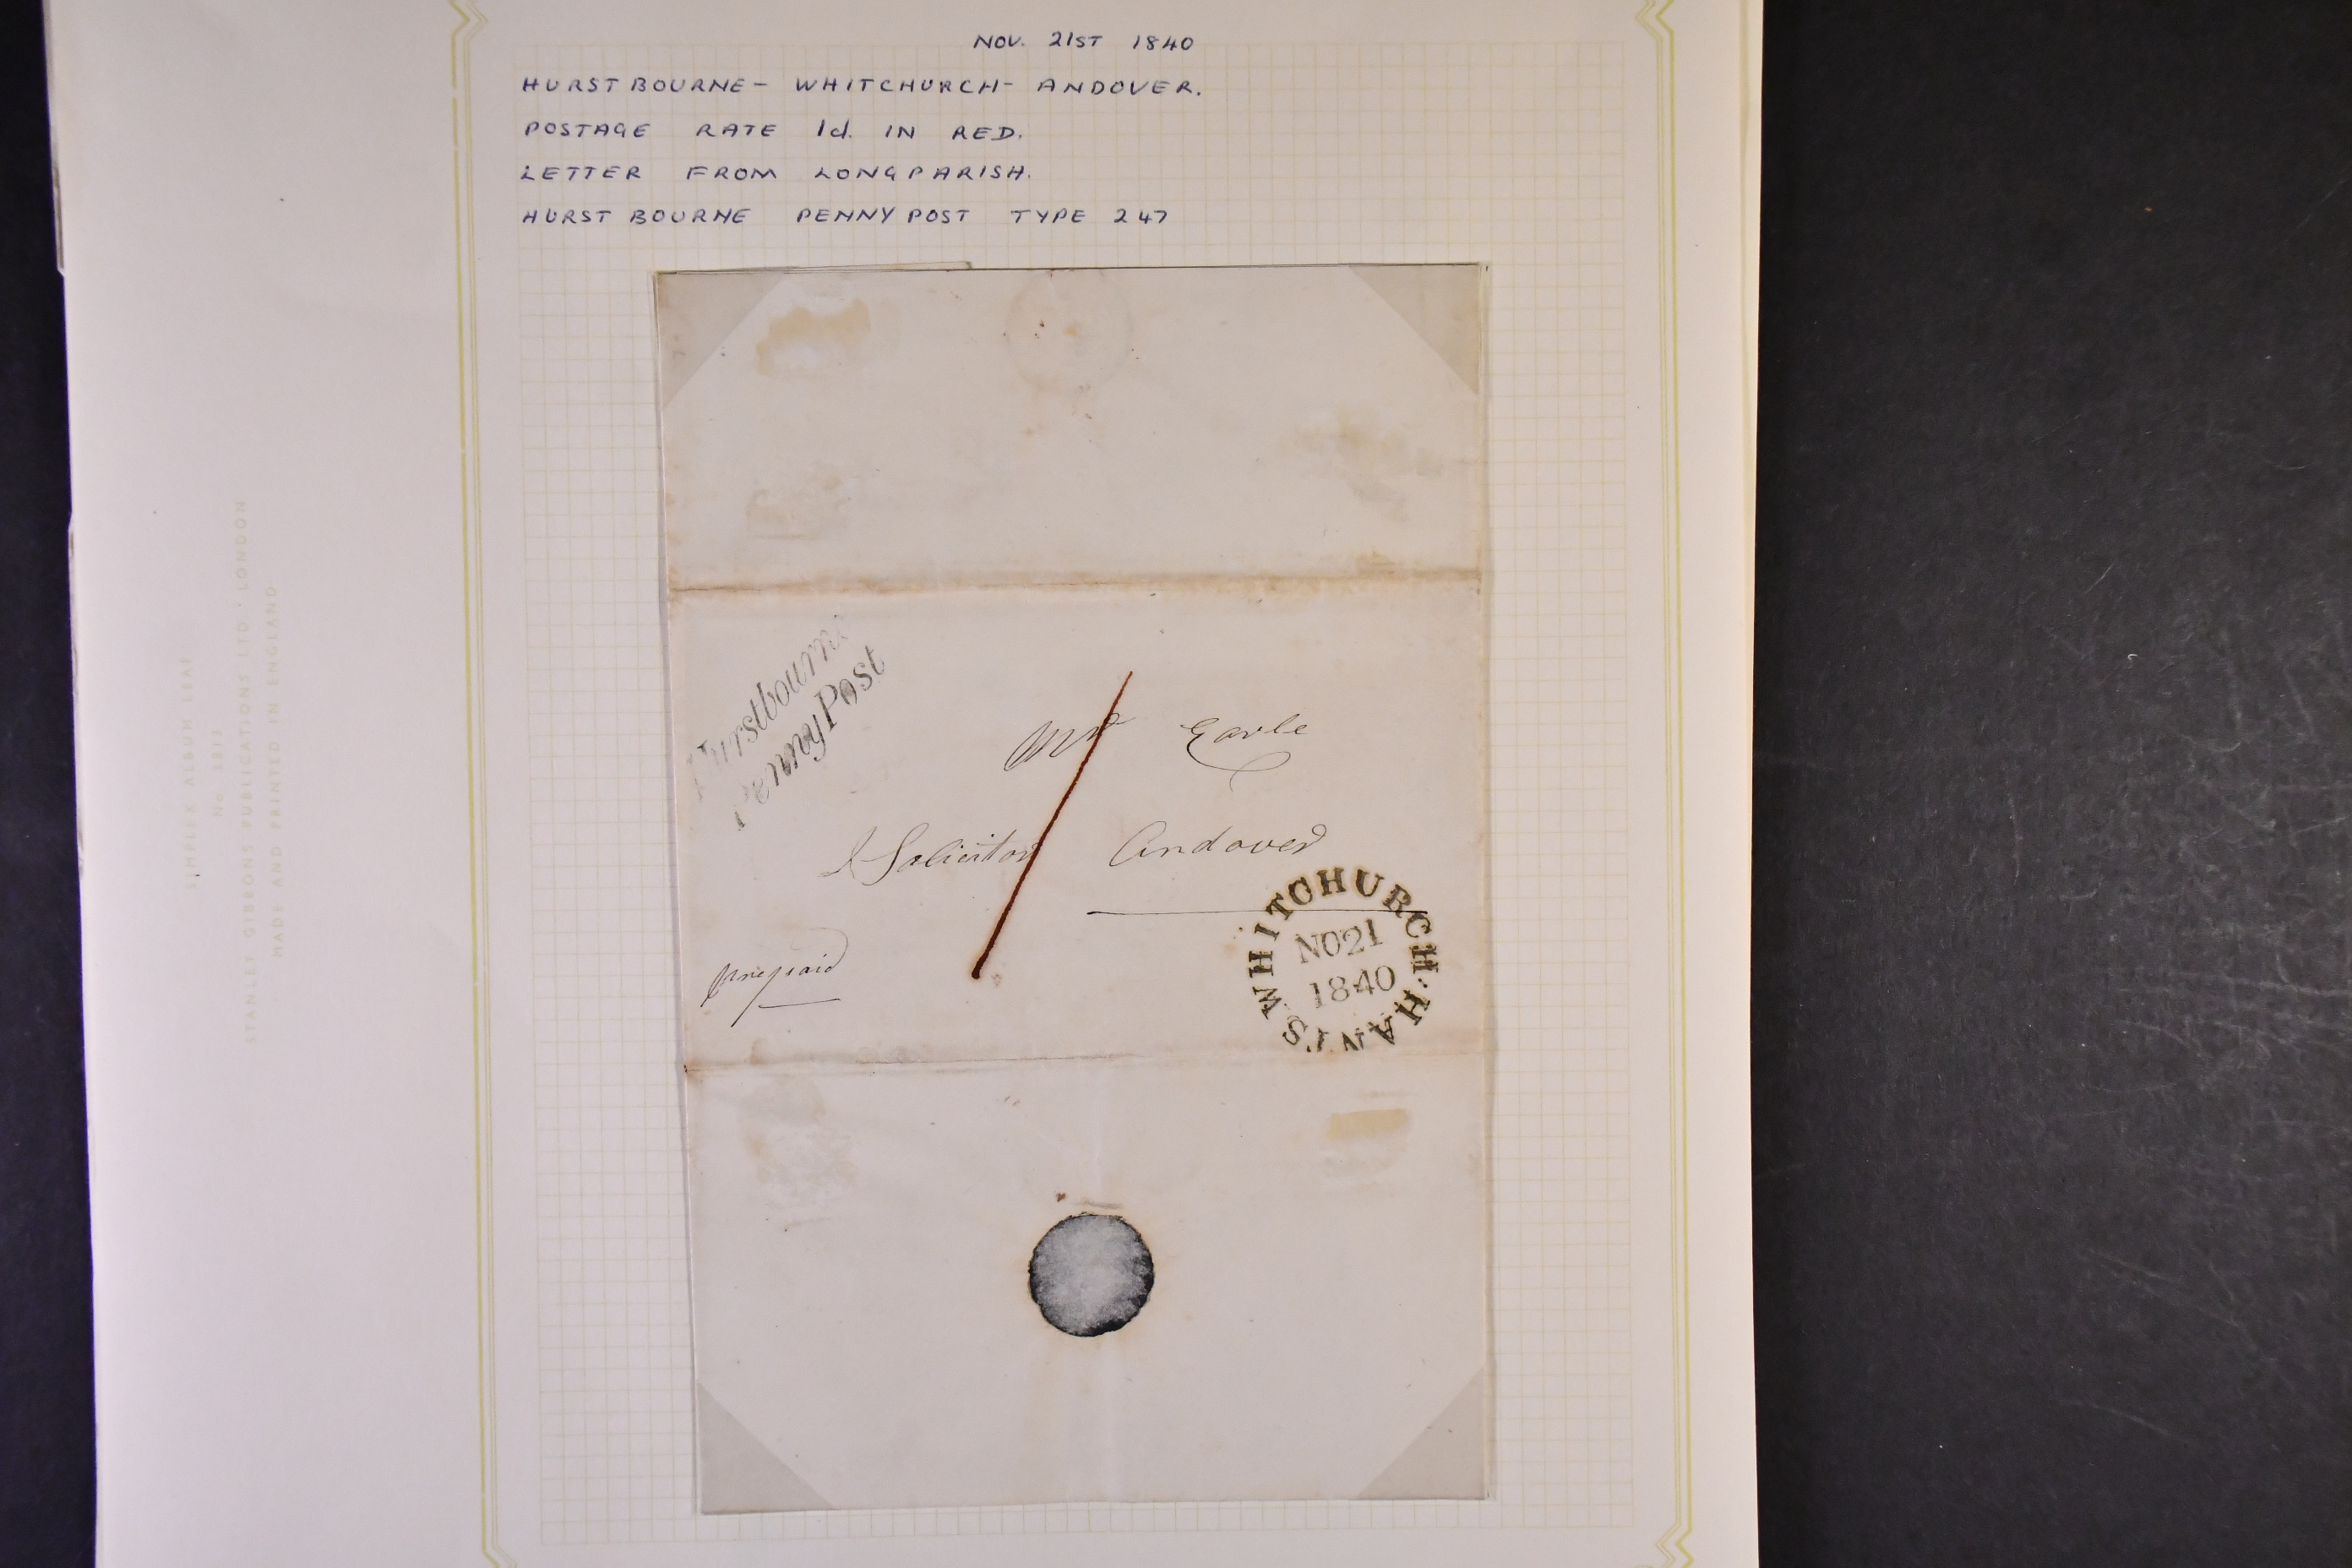 NOV. 21ST 1840
HURSTBOURNE - WHITCHURCH - ANDOVER.
POSTAGE RATE 1d. IN RED.
LETTER FROM LONGPARISH.
HURSTBOURNE PENNY POST TYPE 247
Hurstbourne
Penny Post
Mr Earle
Solicitor Andover
prepaid
WHITCHURCH·HANTS
NO21
1840
SIMPLEX ALBUM LEAF
No 3813
STANLEY GIBBONS PUBLICATIONS LTD · LONDON
MADE AND PRINTED IN ENGLAND